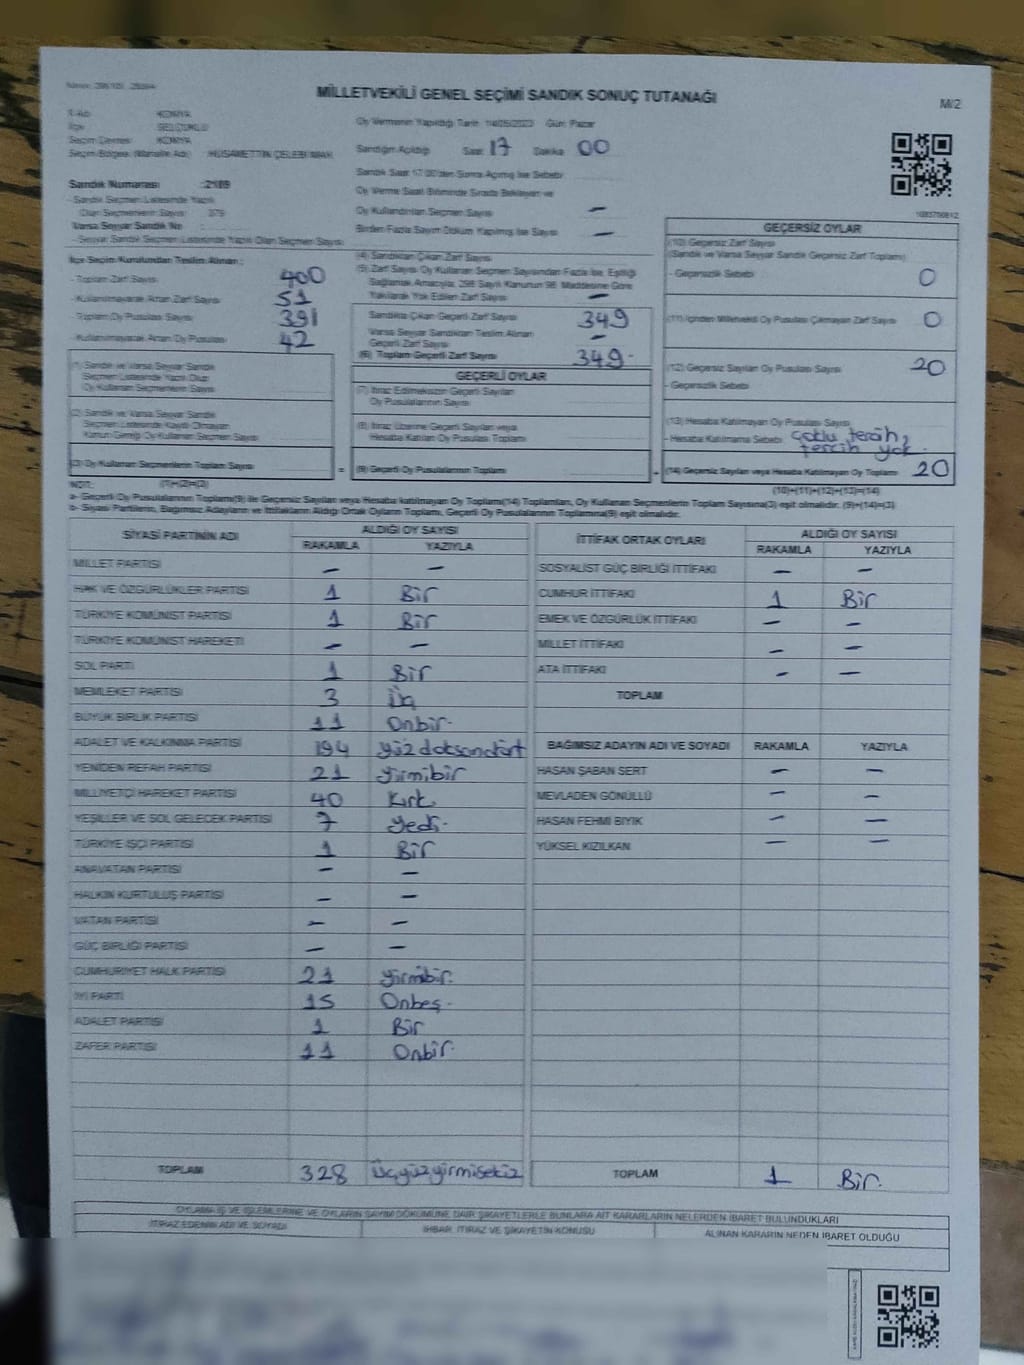 MİLLETVEKİLİ GENEL SEÇİMİ SANDIK SONUÇ TUTANAĞI
M/2
KONYA
İlçe SELÇUKLU
Seçim Çevresi KONYA
Seçim Bölgesi (Mahalle Adı) HÜSAMETTİN ÇELEBİ MAH.
Sandık Numarası
- Sandık Seçmen Listesinde Yazılı
Olan Seçmenlerin Sayısı 379
Varsa Seyyar Sandık No
- Seyyar Sandık Seçmen Listesinde Yazılı Olan Seçmen Sayısı
Oy Vermenin Yapıldığı Tarih 14/05/2023 Gün: Pazar
Sandığın Açıldığı Saat 17 Dakika 00
Sandık Saat 17.00'den Sonra Açılmış İse Sebebi
Oy Verme Saati Bitiminde Sırada Bekleyen ve
Oy Kullandırılan Seçmen Sayısı –
Birden Fazla Sayım Döküm Yapılmış İse Sayısı –
İlçe Seçim Kurulundan Teslim Alınan
- Toplam Zarf Sayısı 400
- Kullanılmayarak Artan Zarf Sayısı 51
- Toplam Oy Pusulası Sayısı 391
- Kullanılmayarak Artan Oy Pusulası 42
(1) Sandık ve Varsa Seyyar Sandık
Seçmen Listesinde Yazılı Olup
Oy Kullanan Seçmenlerin Sayısı
(2) Sandık ve Varsa Seyyar Sandık
Seçmen Listesinde Kayıtlı Olmayan
Kanun Gereği Oy Kullanan Seçmen Sayısı
(3) Oy Kullanan Seçmenlerin Toplam Sayısı
(1)+(2)=(3)
(4) Sandıktan Çıkan Zarf Sayısı
(5) Zarf Sayısı Oy Kullanan Seçmen Sayısından Fazla İse, Eşitliği
Sağlamak Amacıyla, 298 Sayılı Kanunun 98. Maddesine Göre
Yakılarak Yok Edilen Zarf Sayısı –
Sandıkta Çıkan Geçerli Zarf Sayısı 349
Varsa Seyyar Sandıktan Teslim Alınan
Geçerli Zarf Sayısı –
(6) Toplam Geçerli Zarf Sayısı 349-
GEÇERLİ OYLAR
(7) İtiraz Edilmeksizin Geçerli Sayılan
Oy Pusulalarının Sayısı
(8) İtiraz Üzerine Geçerli Sayılan veya
Hesaba Katılan Oy Pusulası Toplamı
= (9) Geçerli Oy Pusulalarının Toplamı
GEÇERSİZ OYLAR
(10) Geçersiz Zarf Sayısı
(Sandık ve Varsa Seyyar Sandık Geçersiz Zarf Toplamı)
- Geçersizlik Sebebi 0
(11) İçinden Milletvekili Oy Pusulası Çıkmayan Zarf Sayısı 0
(12) Geçersiz Sayılan Oy Pusulası Sayısı 20
- Geçersizlik Sebebi
(13) Hesaba Katılmayan Oy Pusulası Sayısı
- Hesaba Katılmama Sebebi çoklu tercih,
tercih yok.
+ (14) Geçersiz Sayılan veya Hesaba Katılmayan Oy Toplamı 20
(10)+(11)+(12)+(13)=(14)
NOT:
a- Geçerli Oy Pusulalarının Toplamı(9) ile Geçersiz Sayılan veya Hesaba katılmayan Oy Toplamı(14) Toplamları, Oy Kullanan Seçmenlerin Toplam Sayısına(3) eşit olmalıdır. (9)+(14)=(3)
b- Siyasi Partilerin, Bağımsız Adayların ve İttifakların Aldığı Ortak Oyların Toplamı, Geçerli Oy Pusulalarının Toplamına(9) eşit olmalıdır.
SİYASİ PARTİNİN ADI ALDIĞI OY SAYISI
RAKAMLA YAZIYLA
MİLLET PARTİSİ – –
HAK VE ÖZGÜRLÜKLER PARTİSİ 1 Bir
TÜRKİYE KOMÜNİST PARTİSİ 1 Bir
TÜRKİYE KOMÜNİST HAREKETİ – –
SOL PARTİ 1 Bir
MEMLEKET PARTİSİ 3 Üç
BÜYÜK BİRLİK PARTİSİ 11 Onbir.
ADALET VE KALKINMA PARTİSİ 194 yüzdoksandört
YENİDEN REFAH PARTİSİ 21 yirmibir
MİLLİYETÇİ HAREKET PARTİSİ 40 Kırk
YEŞİLLER VE SOL GELECEK PARTİSİ 7 yedi.
TÜRKİYE İŞÇİ PARTİSİ 1 Bir
ANAVATAN PARTİSİ – –
HALKIN KURTULUŞ PARTİSİ – –
VATAN PARTİSİ – –
GÜÇ BİRLİĞİ PARTİSİ – –
CUMHURİYET HALK PARTİSİ 21 yirmibir.
İYİ PARTİ 15 Onbeş.
ADALET PARTİSİ 1 Bir
ZAFER PARTİSİ 11 Onbir.
TOPLAM 328 üçyüzyirmisekiz
İTTİFAK ORTAK OYLARI ALDIĞI OY SAYISI
RAKAMLA YAZIYLA
SOSYALİST GÜÇ BİRLİĞİ İTTİFAKI – –
CUMHUR İTTİFAKI 1 Bir
EMEK VE ÖZGÜRLÜK İTTİFAKI – –
MİLLET İTTİFAKI – –
ATA İTTİFAKI – –
TOPLAM
BAĞIMSIZ ADAYIN ADI VE SOYADI RAKAMLA YAZIYLA
HASAN ŞABAN SERT – –
MEVLADEN GÖNÜLLÜ – –
HASAN FEHMİ BIYIK – –
YÜKSEL KIZILKAN – –
TOPLAM 1 Bir.
OYLAMA İŞ VE İŞLEMLERİNE VE OYLARIN SAYIM DÖKÜMÜNE DAİR ŞİKAYETLERLE BUNLARA AİT KARARLARIN NELERDEN İBARET BULUNDUKLARI
İTİRAZ EDENİN ADI VE SOYADI
İHBAR, İTİRAZ VE ŞİKAYETİN KONUSU
ALINAN KARARIN NEDEN İBARET OLDUĞU